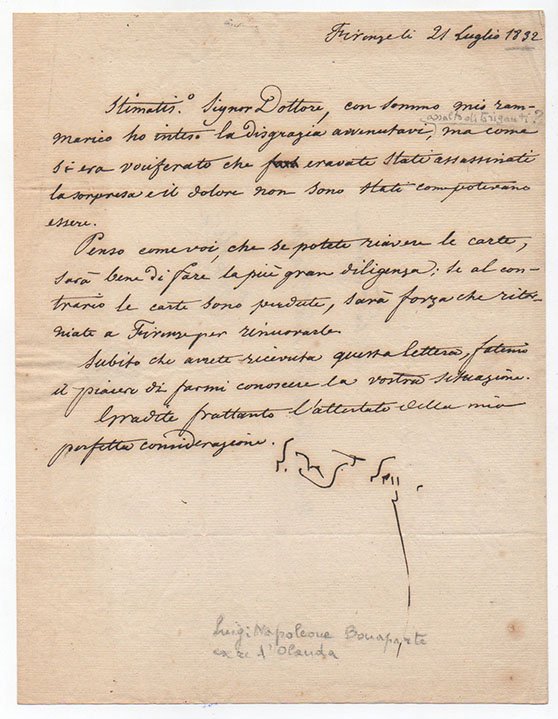 Firenze li 21 Luglio 1832
Stimatis.º Signor Dottore, con sommo mio ram-
marico ho inteso la disgrazia avvenutavi, ma come
assalto di briganti?
si era vociferato che eravate stati assassinati
la sorpresa e il dolore non sono stati come potevano
essere.
Penso come voi, che se potete riavere le carte,
sarà bene di fare la più gran diligenza; se al con-
trario le carte sono perdute, sarà forza che ritor-
niate a Firenze per rinnovarle.
Subito che avrete ricevuta questa lettera, fatemi
il piacere di farmi conoscere la vostra situazione.
Gradite frattanto l'attestato della mia
perfetta considerazione.
Luigi Napoleone Bonaparte
ex re d'Olanda